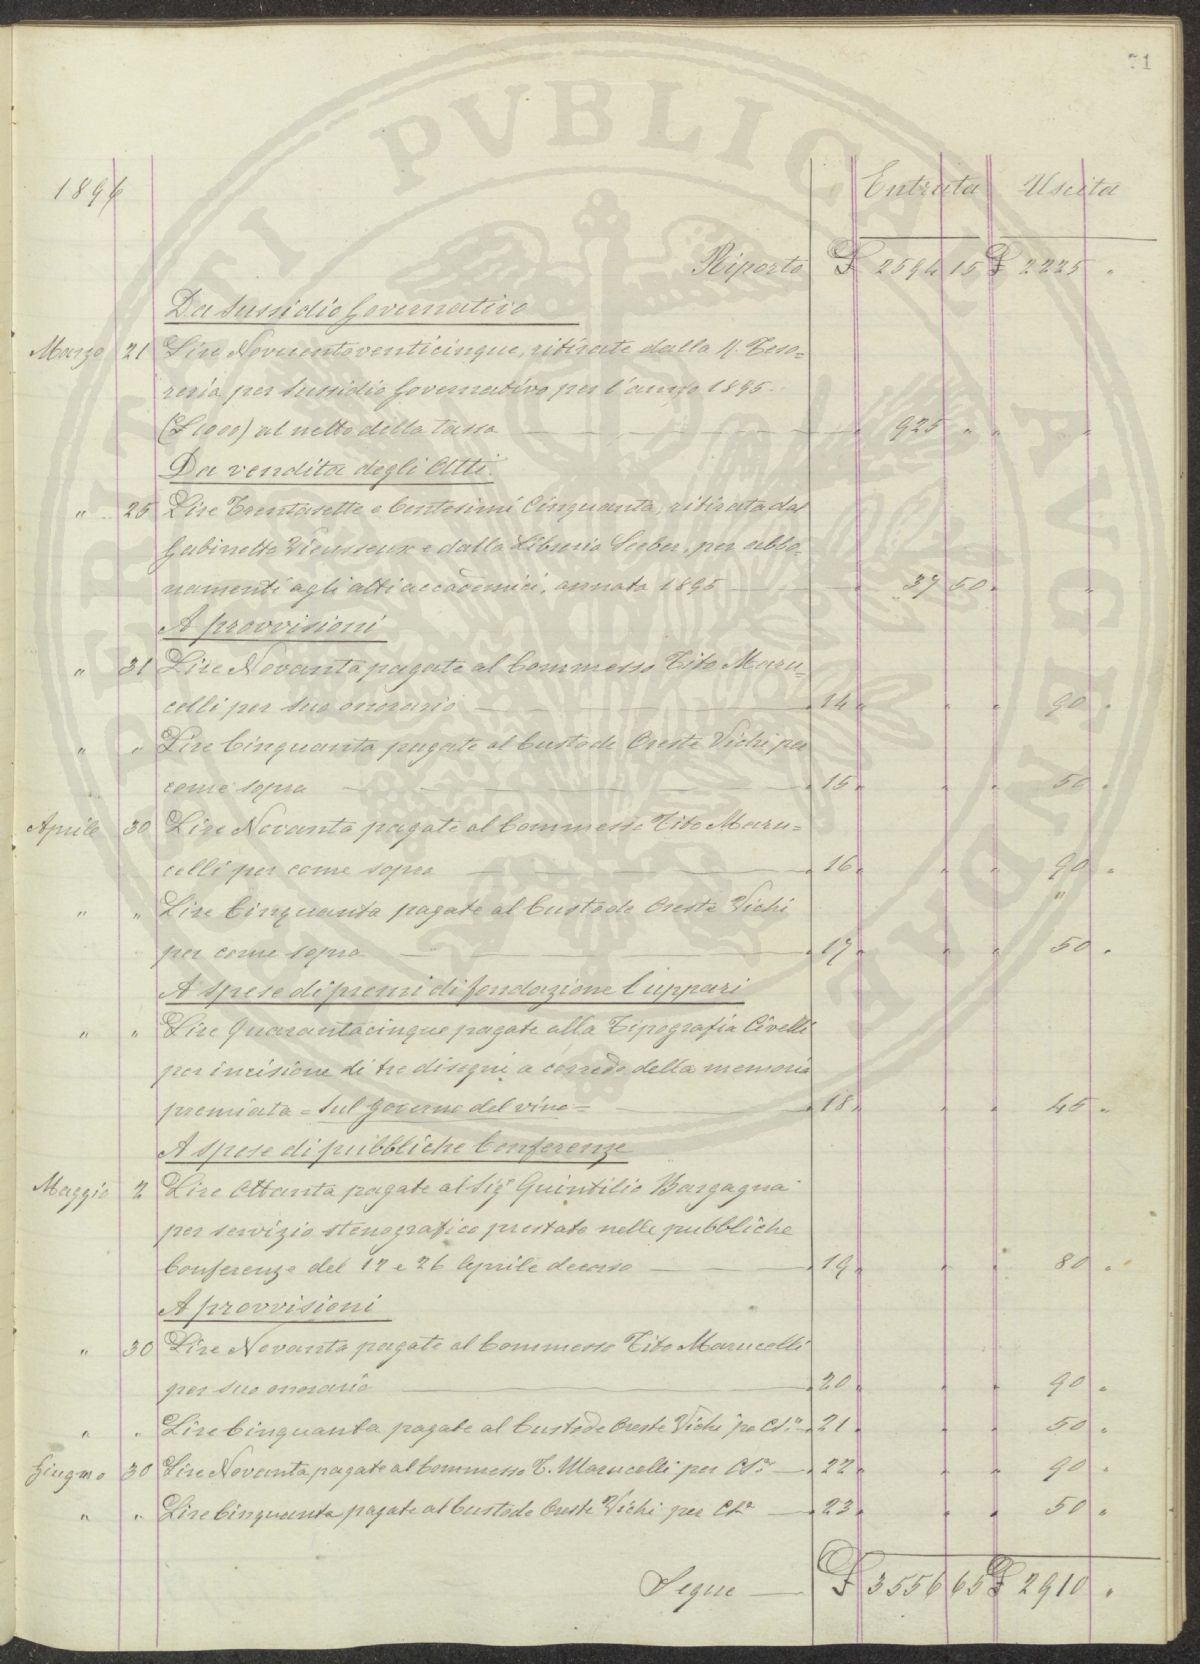 71
1896
Entrata Uscita
Riporto £ 2594 15 £ 2225 "
Da Sussidio Governativo
Marzo 21 Lire Novecentoventicinque, ritirate dalla R. Teso=
reria per Sussidio Governativo per l'anno 1895
(£ 1000) al netto della tassa — " 925 " " "
Da vendita degli Atti.
" 25 Lire Trentasette e Centesimi Cinquanta, ritirata dal
Gabinetto Vieusseux e dalla Libreria Seeber, per abbo=
namenti agli atti accademici, annata 1895 — " 37 50 " "
A provvisioni
" 31 Lire Novanta pagate al Commesso Tito Maru=
celli per suo onorario — " 14 " " " 90 "
" " Lire Cinquanta pagate al Custode Oreste Vichi per
come sopra — " 15 " " " 50 "
Aprile 30 Lire Novanta pagate al Commesso Tito Maru=
celli per come sopra — " 16 " " " 90 "
" " Lire Cinquanta pagate al Custode Oreste Vichi "
per come sopra — " 17 " " " 50 "
A spese di premi di fondazione Cuppari
" " Lire Quarantacinque pagate alla Tipografia Civelli
per incisione di tre disegni a corredo della memoria
premiata = Sul governo del vino = — " 18 " " " 45 "
A spese di pubbliche Conferenze
Maggio 2 Lire Ottanta pagate al Sigr Quintilio Bargagna
per servizio stenografico prestato nelle pubbliche
Conferenze del 12 e 26 Aprile decorso — " 19 " " " 80 "
A provvisioni
" 30 Lire Novanta pagate al Commesso Tito Marucelli
per suo onorario — " 20 " " " 90 "
" " Lire Cinquanta pagate al Custode Oreste Vichi " 21 " " " 50 "
Giugno 30 Lire Novanta pagate al Commesso T. Marucelli per — " 22 " " " 90 "
" " Lire Cinquanta pagate al Custode Oreste Vichi per — " 23 " " " 50 "
Segue — £ 3556 65 £ 2910 "